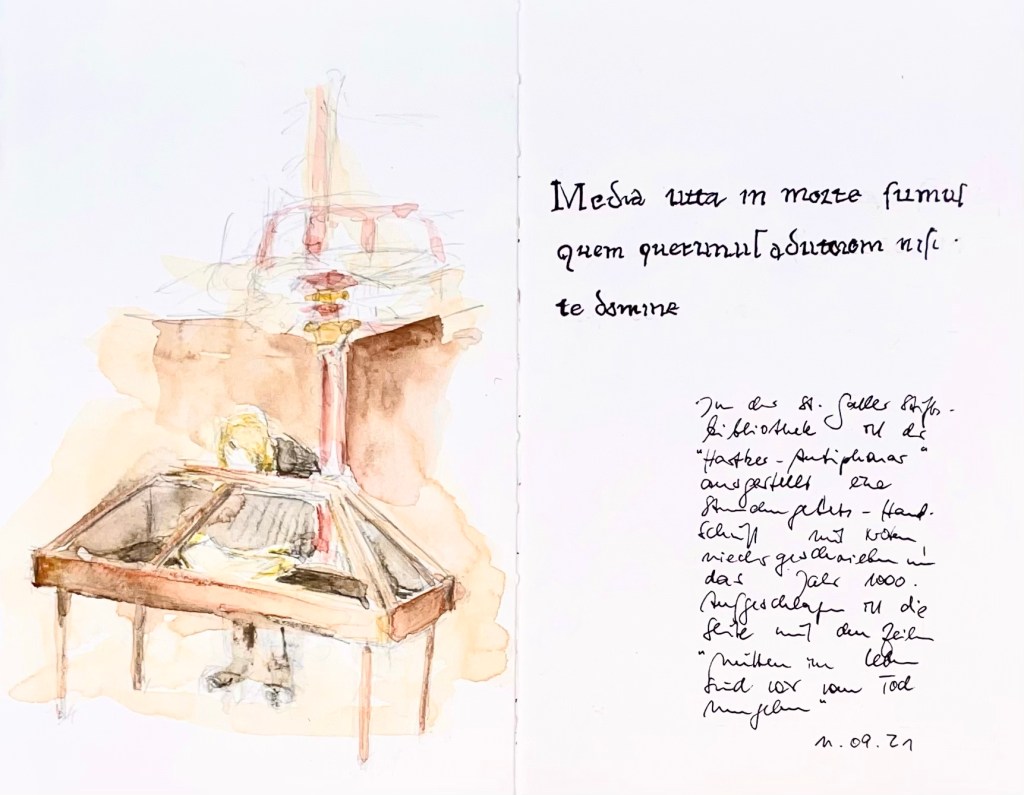 Media uita in morte ſumuſ
quem querimuſ adiutorem niſi ·
te domine
In der St. Galler Stifts-
bibliothek ist das
"Hartker-Antiphonar"
ausgestellt eine
Stundengebets-Hand-
schrift mit Noten
niedergeschrieben um
das Jahr 1000.
Aufgeschlagen ist die
Seite mit den Zeilen
"Mitten im Leben
sind wir vom Tod
umgeben"
11.09.21